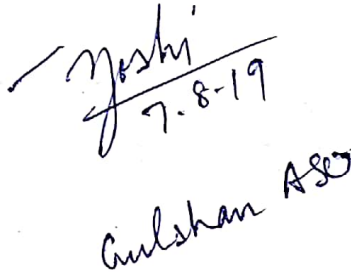 Joshi
7-8-19
Gulshan ASO